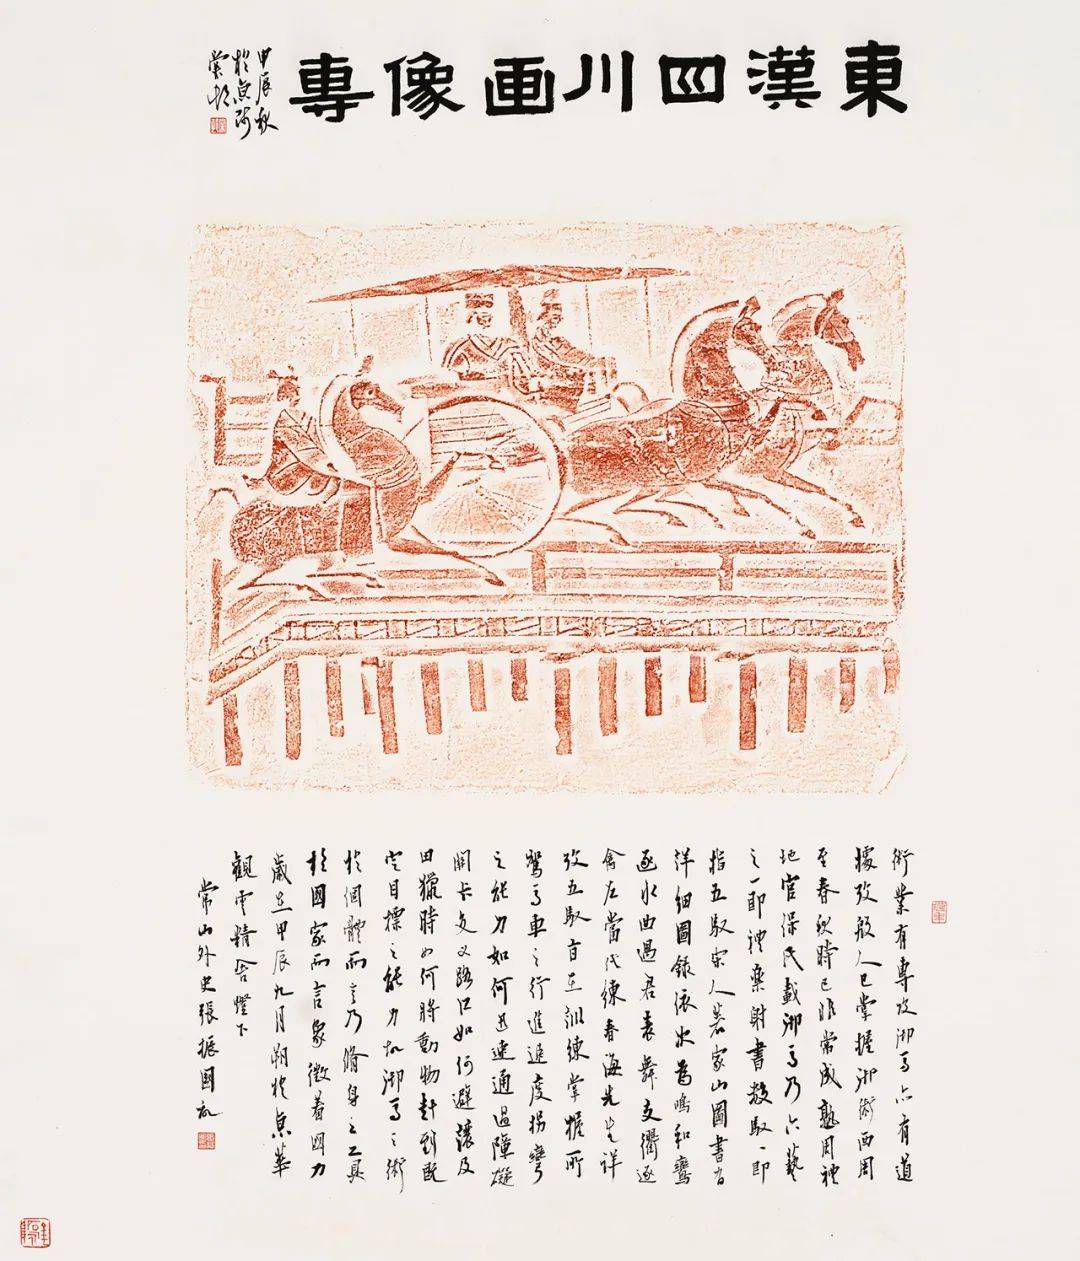 東漢四川画像專
甲辰秋
術業有專攻御馬亦有道
據攷殷人已掌握御術西周
至春秋時已非常成熟周禮
地官保氏載御馬乃六藝
之一即禮樂射書數馭一即
指五馭宋人著家山圖書有
詳細圖錄依次為鳴和鸞
逐水曲過君表舞交衢逐
禽左當代練春海先生詳
攷五馭旨在訓練掌握所
駕馬車之行進速度拐彎
之能力如何迅速通過障礙
關卡交叉路口如何避讓及
田獵時如何將動物趕到既
定目標之能力故御馬之術
於個體而言乃脩身之工具
於國家而言象徵着國力
歲在甲辰九月朔於京華
觀雲精舍燈下
常山外史張振國記